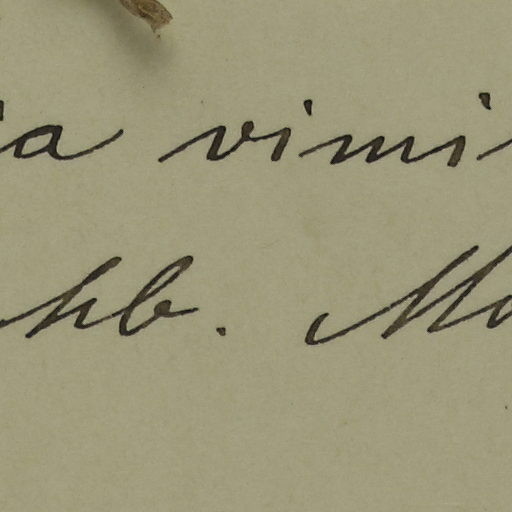 ia vimi
hb. Mo